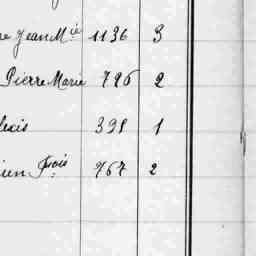 Jean Mie 1136 3
Pierre Marie 726 2
lexis 391 1
ien Fois 767 2